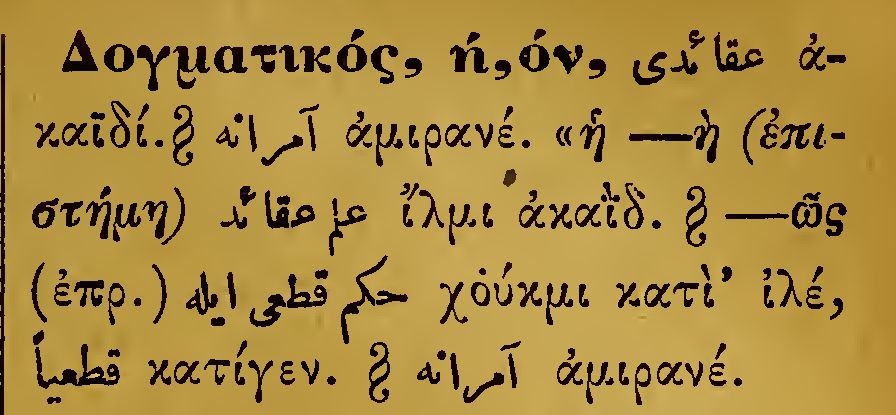 Δογματικός, ή, όν, عقائدى ἀ-
καϊδί. ⸹ آمرانه ἀμιρανέ. «ἡ —ὴ (ἐπι-
στήμη) علم عقائد ἴλμι ἀκαΐδ. ⸹ —ῶς
(ἐπρ.) حكم قطعى ايله χὀύκμι κατὶ’ ἰλέ,
قطعياً κατίγεν. ⸹ آمرانه ἀμιρανέ.